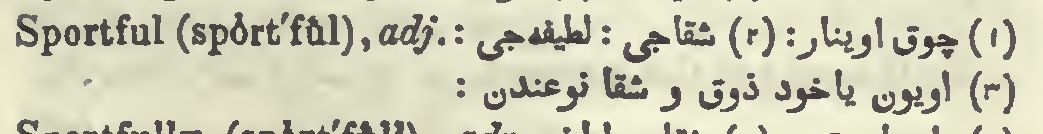 Sportful (spôrt′fŭl), adj.: (۱) چوق اوینار: (۲) شقاجی: لطیفه‌جی:
(۳) اویون یاخود ذوق و شقا نوعندن: